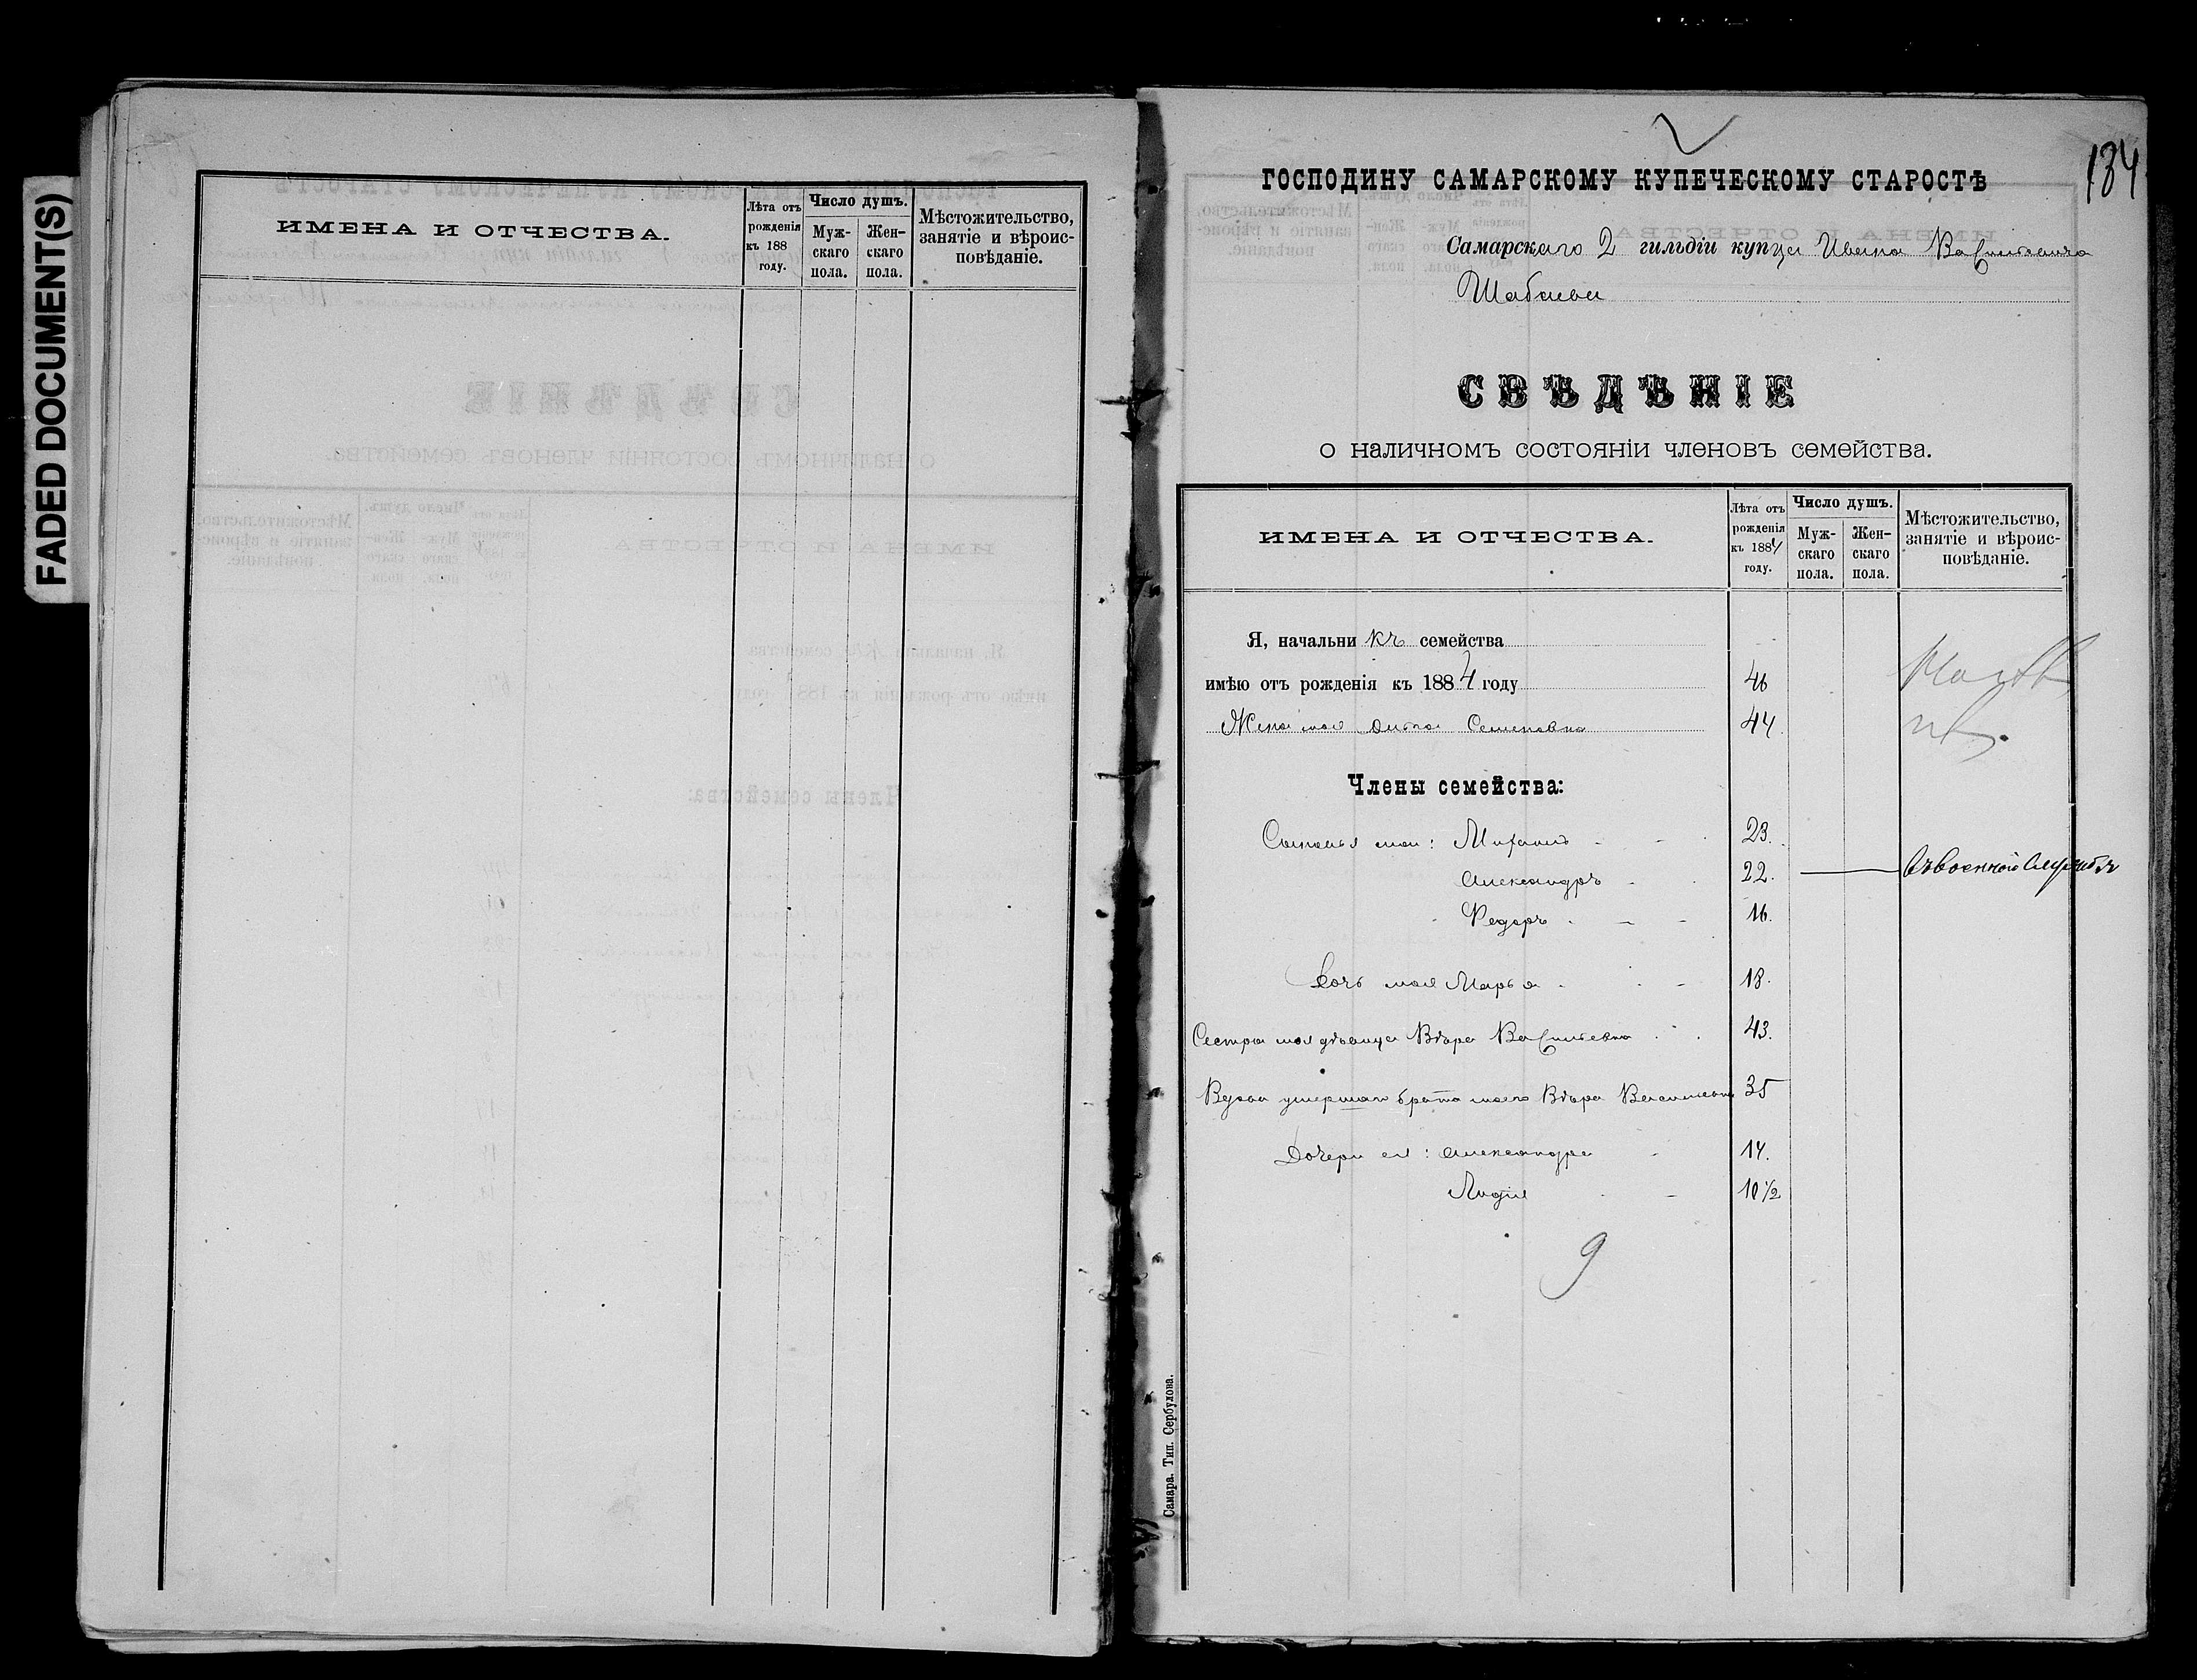 FADED DOCUMENT(S)
ИМЕНА И ОТЧЕСТВА.
Лѣта отъ рожденія къ 188 году.
Число душъ.
Мужскаго пола.
Женскаго пола.
Мѣстожительство, занятіе и вѣроисповѣданіе.
134
ГОСПОДИНУ САМАРСКОМУ КУПЕЧЕСКОМУ СТАРОСТѢ
Самарскаго 2 гильдіи купца Ивана Васильевича
Шабаева
СВѢДѢНІЕ
о наличномъ состояніи членовъ семейства.
ИМЕНА И ОТЧЕСТВА.
Лѣта отъ рожденія къ 1884 году.
Число душъ.
Мужскаго пола.
Женскаго пола.
Мѣстожительство, занятіе и вѣроисповѣданіе.
Я, начальникъ семейства
имѣю отъ рожденія къ 1884 году 46
Жена моя Семеновна 44
Члены семейства:
Сыновья мои: Михаилъ 23.
Александръ 22. Въ военной службѣ
Федоръ 16.
Дочь моя Марья 18.
Сестра моя дѣвица Вѣра Васильевна 43.
Вдова умершаго брата моего Вѣра Васильевна 35
Дочери ея: Александра 14.
Лидія 10 1/2
9
Самара. Тип. Сербулова.